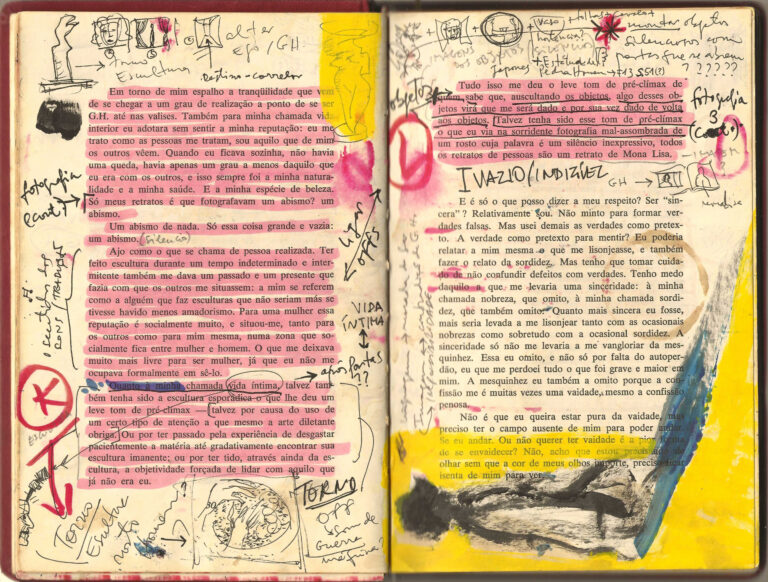 alter
Ego / G.H.
Escultura
Destino-correlor
Em torno de mim espalho a tranqüilidade que vem
de se chegar a um grau de realização a ponto de se ser
G.H. até nas valises. Também para minha chamada vida
interior eu adotara sem sentir a minha reputação: eu me
trato como as pessoas me tratam, sou aquilo que de mim
os outros vêem. Quando eu ficava sozinha, não havia
uma queda, havia apenas um grau a menos daquilo que
eu era com os outros, e isso sempre foi a minha natura-
lidade e a minha saúde. E a minha espécie de beleza.
Só meus retratos é que fotografavam um abismo? um
abismo.
Um abismo de nada. Só essa coisa grande e vazia:
um abismo. (silencio)
Ajo como o que se chama de pessoa realizada. Ter
feito escultura durante um tempo indeterminado e inter-
mitente também me dava um passado e um presente que
fazia com que os outros me situassem: a mim se referem
como a alguém que faz esculturas que não seriam más se
tivesse havido menos amadorismo. Para uma mulher essa
reputação é socialmente muito, e situou-me, tanto para
os outros como para mim mesma, numa zona que so-
cialmente fica entre mulher e homem. O que me deixava
muito mais livre para ser mulher, já que eu não me
ocupava formalmente em sê-lo.
Quanto à minha chamada vida íntima, talvez tam-
bém tenha sido a escultura esporádica o que lhe deu um
leve tom de pré-clímax — talvez por causa do uso de
um certo tipo de atenção a que mesmo a arte diletante
obriga. Ou por ter passado pela experiência de desgastar
pacientemente a matéria até gradativamente encontrar sua
escultura imanente; ou por ter tido, através ainda da es-
cultura, a objetividade forçada de lidar com aquilo que
já não era eu.
fotografia
lugar
OPPS
VIDA
ÍNTIMA
TORNO
OPP
som de
Guerra
montar objetos
silenciosos com
portas que se abrem
?????
objetos
Tudo isso me deu o leve tom de pré-clímax de
quem sabe que, auscultando os objetos, algo desses ob-
jetos virá que me será dado e por sua vez dado de volta
aos objetos. Talvez tenha sido esse tom de pré-clímax
o que eu via na sorridente fotografia mal-assombrada de
um rosto cuja palavra é um silêncio inexpressivo, todos
os retratos de pessoas são um retrato de Mona Lisa.
fotografia
3
VAZIO/INDIZÍVEL
GH
E é só o que posso dizer a meu respeito? Ser "sin-
cera"? Relativamente sou. Não minto para formar ver-
dades falsas. Mas usei demais as verdades como pretex-
to. A verdade como pretexto para mentir? Eu poderia
relatar a mim mesma o que me lisonjeasse, e também
fazer o relato da sordidez. Mas tenho que tomar cuida-
do de não confundir defeitos com verdades. Tenho medo
daquilo a que me levaria uma sinceridade: à minha
chamada nobreza, que omito, à minha chamada sordi-
dez, que também omito. Quanto mais sincera eu fosse,
mais seria levada a me lisonjear tanto com as ocasionais
nobrezas como sobretudo com a ocasional sordidez. A
sinceridade só não me levaria a me vangloriar da mes-
quinhez. Essa eu omito, e não só por falta do autoper-
dão, eu que me perdoei tudo o que foi grave e maior em
mim. A mesquinhez eu também a omito porque a con-
fissão me é muitas vezes uma vaidade, mesmo a confissão
penosa.
Não é que eu queira estar pura da vaidade, mas
preciso ter o campo ausente de mim para poder andar.
Se eu andar. Ou não querer ter vaidade é a pior forma
de se envaidecer? Não, acho que estou precisando de
olhar sem que a cor de meus olhos importe, preciso ficar
isenta de mim para ver.